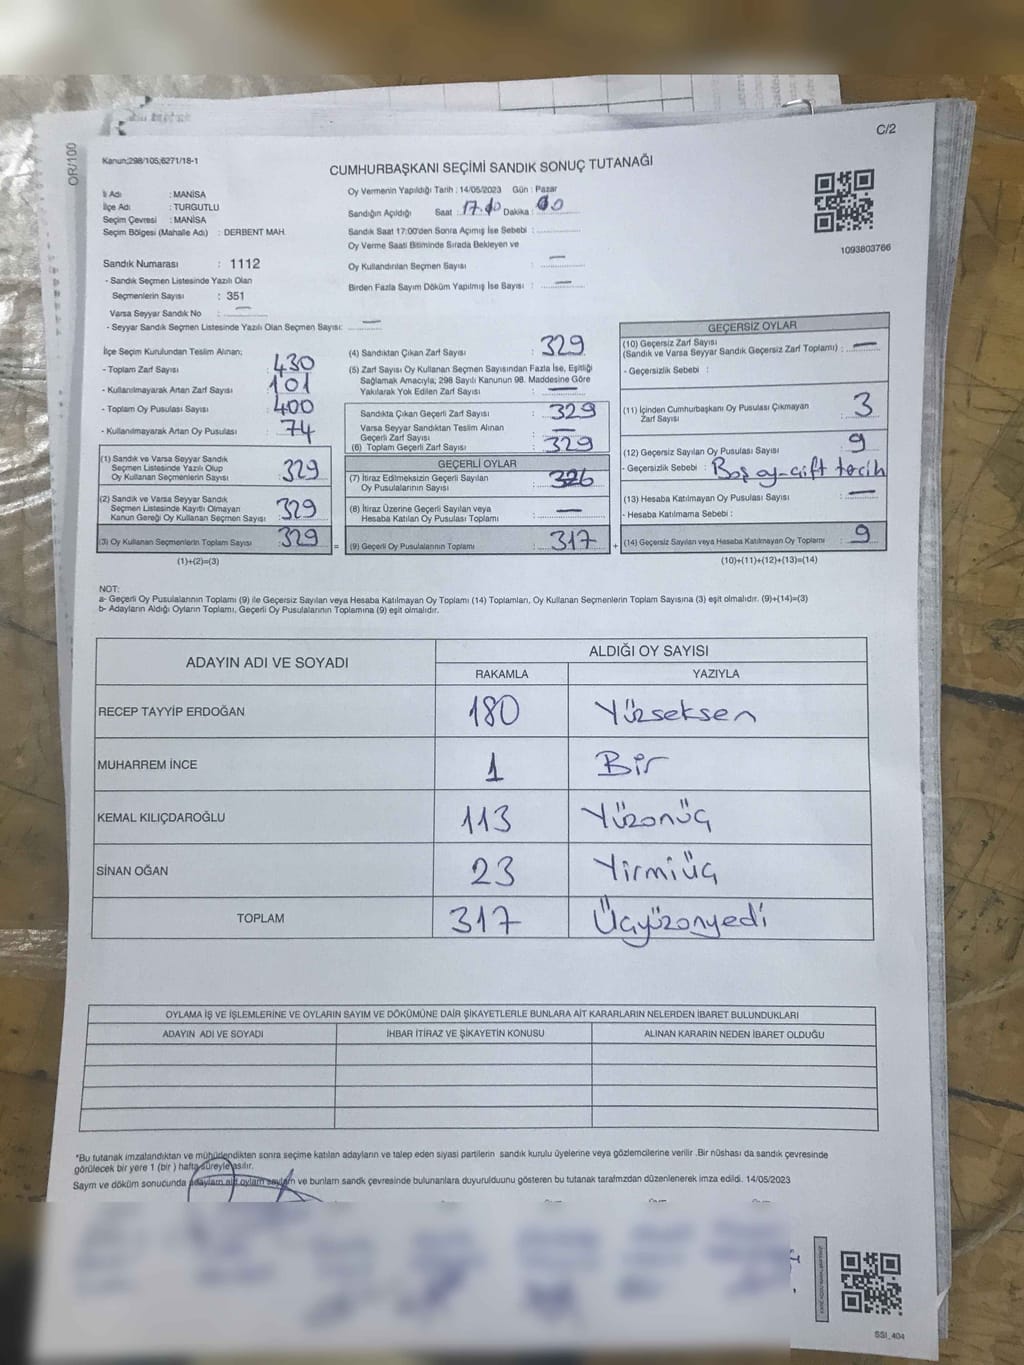 C/2
OR/100
Kanun;298/105,6271/18-1
CUMHURBAŞKANI SEÇİMİ SANDIK SONUÇ TUTANAĞI
İl Adı : MANİSA
İlçe Adı : TURGUTLU
Seçim Çevresi : MANİSA
Seçim Bölgesi (Mahalle Adı) : DERBENT MAH.
Sandık Numarası : 1112
- Sandık Seçmen Listesinde Yazılı Olan
Seçmenlerin Sayısı : 351
Varsa Seyyar Sandık No : —
- Seyyar Sandık Seçmen Listesinde Yazılı Olan Seçmen Sayısı: —
Oy Vermenin Yapıldığı Tarih : 14/05/2023 Gün : Pazar
Sandığın Açıldığı Saat : 17.00 Dakika : 00
Sandık Saat 17:00'den Sonra Açımış İse Sebebi :
Oy Verme Saati Bitiminde Sırada Bekleyen ve
Oy Kullandırılan Seçmen Sayısı : —
Birden Fazla Sayım Döküm Yapılmış İse Sayısı : —
1093803766
İlçe Seçim Kurulundan Teslim Alınan;
- Toplam Zarf Sayısı : 430
- Kullanılmayarak Artan Zarf Sayısı : 101
- Toplam Oy Pusulası Sayısı : 400
- Kullanılmayarak Artan Oy Pusulası : 74
(1) Sandık ve Varsa Seyyar Sandık
Seçmen Listesinde Yazılı Olup
Oy Kullanan Seçmenlerin Sayısı : 329
(2) Sandık ve Varsa Seyyar Sandık
Seçmen Listesinde Kayıtlı Olmayan
Kanun Gereği Oy Kullanan Seçmen Sayısı : 329
(3) Oy Kullanan Seçmenlerin Toplam Sayısı : 329 =
(1)+(2)=(3)
(4) Sandıktan Çıkan Zarf Sayısı : 329
(5) Zarf Sayısı Oy Kullanan Seçmen Sayısından Fazla İse, Eşitliği
Sağlamak Amacıyla; 298 Sayılı Kanunun 98. Maddesine Göre
Yakılarak Yok Edilen Zarf Sayısı : —
Sandıkta Çıkan Geçerli Zarf Sayısı : 329
Varsa Seyyar Sandıktan Teslim Alınan
Geçerli Zarf Sayısı : —
(6) Toplam Geçerli Zarf Sayısı : 329
GEÇERLİ OYLAR
(7) İtiraz Edilmeksizin Geçerli Sayılan
Oy Pusulalarının Sayısı : 326
(8) İtiraz Üzerine Geçerli Sayılan veya
Hesaba Katılan Oy Pusulası Toplamı : —
(9) Geçerli Oy Pusulalarının Toplamı : 317 +
GEÇERSİZ OYLAR
(10) Geçersiz Zarf Sayısı
(Sandık ve Varsa Seyyar Sandık Geçersiz Zarf Toplamı) : —
- Geçersizlik Sebebi :
(11) İçinden Cumhurbaşkanı Oy Pusulası Çıkmayan
Zarf Sayısı : 3
(12) Geçersiz Sayılan Oy Pusulası Sayısı : 9
- Geçersizlik Sebebi : Boş oy-çift tercih
(13) Hesaba Katılmayan Oy Pusulası Sayısı : —
- Hesaba Katılmama Sebebi :
(14) Geçersiz Sayılan veya Hesaba Katılmayan Oy Toplamı : 9
(10)+(11)+(12)+(13)=(14)
NOT:
a- Geçerli Oy Pusulalarının Toplamı (9) ile Geçersiz Sayılan veya Hesaba Katılmayan Oy Toplamı (14) Toplamları, Oy Kullanan Seçmenlerin Toplam Sayısına (3) eşit olmalıdır. (9)+(14)=(3)
b- Adayların Aldığı Oyların Toplamı, Geçerli Oy Pusulalarının Toplamına (9) eşit olmalıdır.
ADAYIN ADI VE SOYADI ALDIĞI OY SAYISI
RAKAMLA YAZIYLA
RECEP TAYYİP ERDOĞAN 180 Yüzseksen
MUHARREM İNCE 1 Bir
KEMAL KILIÇDAROĞLU 113 Yüzonüç
SİNAN OĞAN 23 Yirmiüç
TOPLAM 317 Üçyüzonyedi
OYLAMA İŞ VE İŞLEMLERİNE VE OYLARIN SAYIM VE DÖKÜMÜNE DAİR ŞİKAYETLERLE BUNLARA AİT KARARLARIN NELERDEN İBARET BULUNDUKLARI
ADAYIN ADI VE SOYADI İHBAR İTİRAZ VE ŞİKAYETİN KONUSU ALINAN KARARIN NEDEN İBARET OLDUĞU
*Bu tutanak imzalandıktan ve mühürlendikten sonra seçime katılan adayların ve talep eden siyasi partilerin sandık kurulu üyelerine veya gözlemcilerine verilir .Bir nüshası da sandık çevresinde
görülecek bir yere 1 (bir ) hafta süreyle asılır.
Sayım ve döküm sonucunda adayların ait oyların sayıları ve bunların sandık çevresinde bulunanlara duyurulduunu gösteren bu tutanak tarafımzdan düzenlenerek imza edildi. 14/05/2023
SSI_404